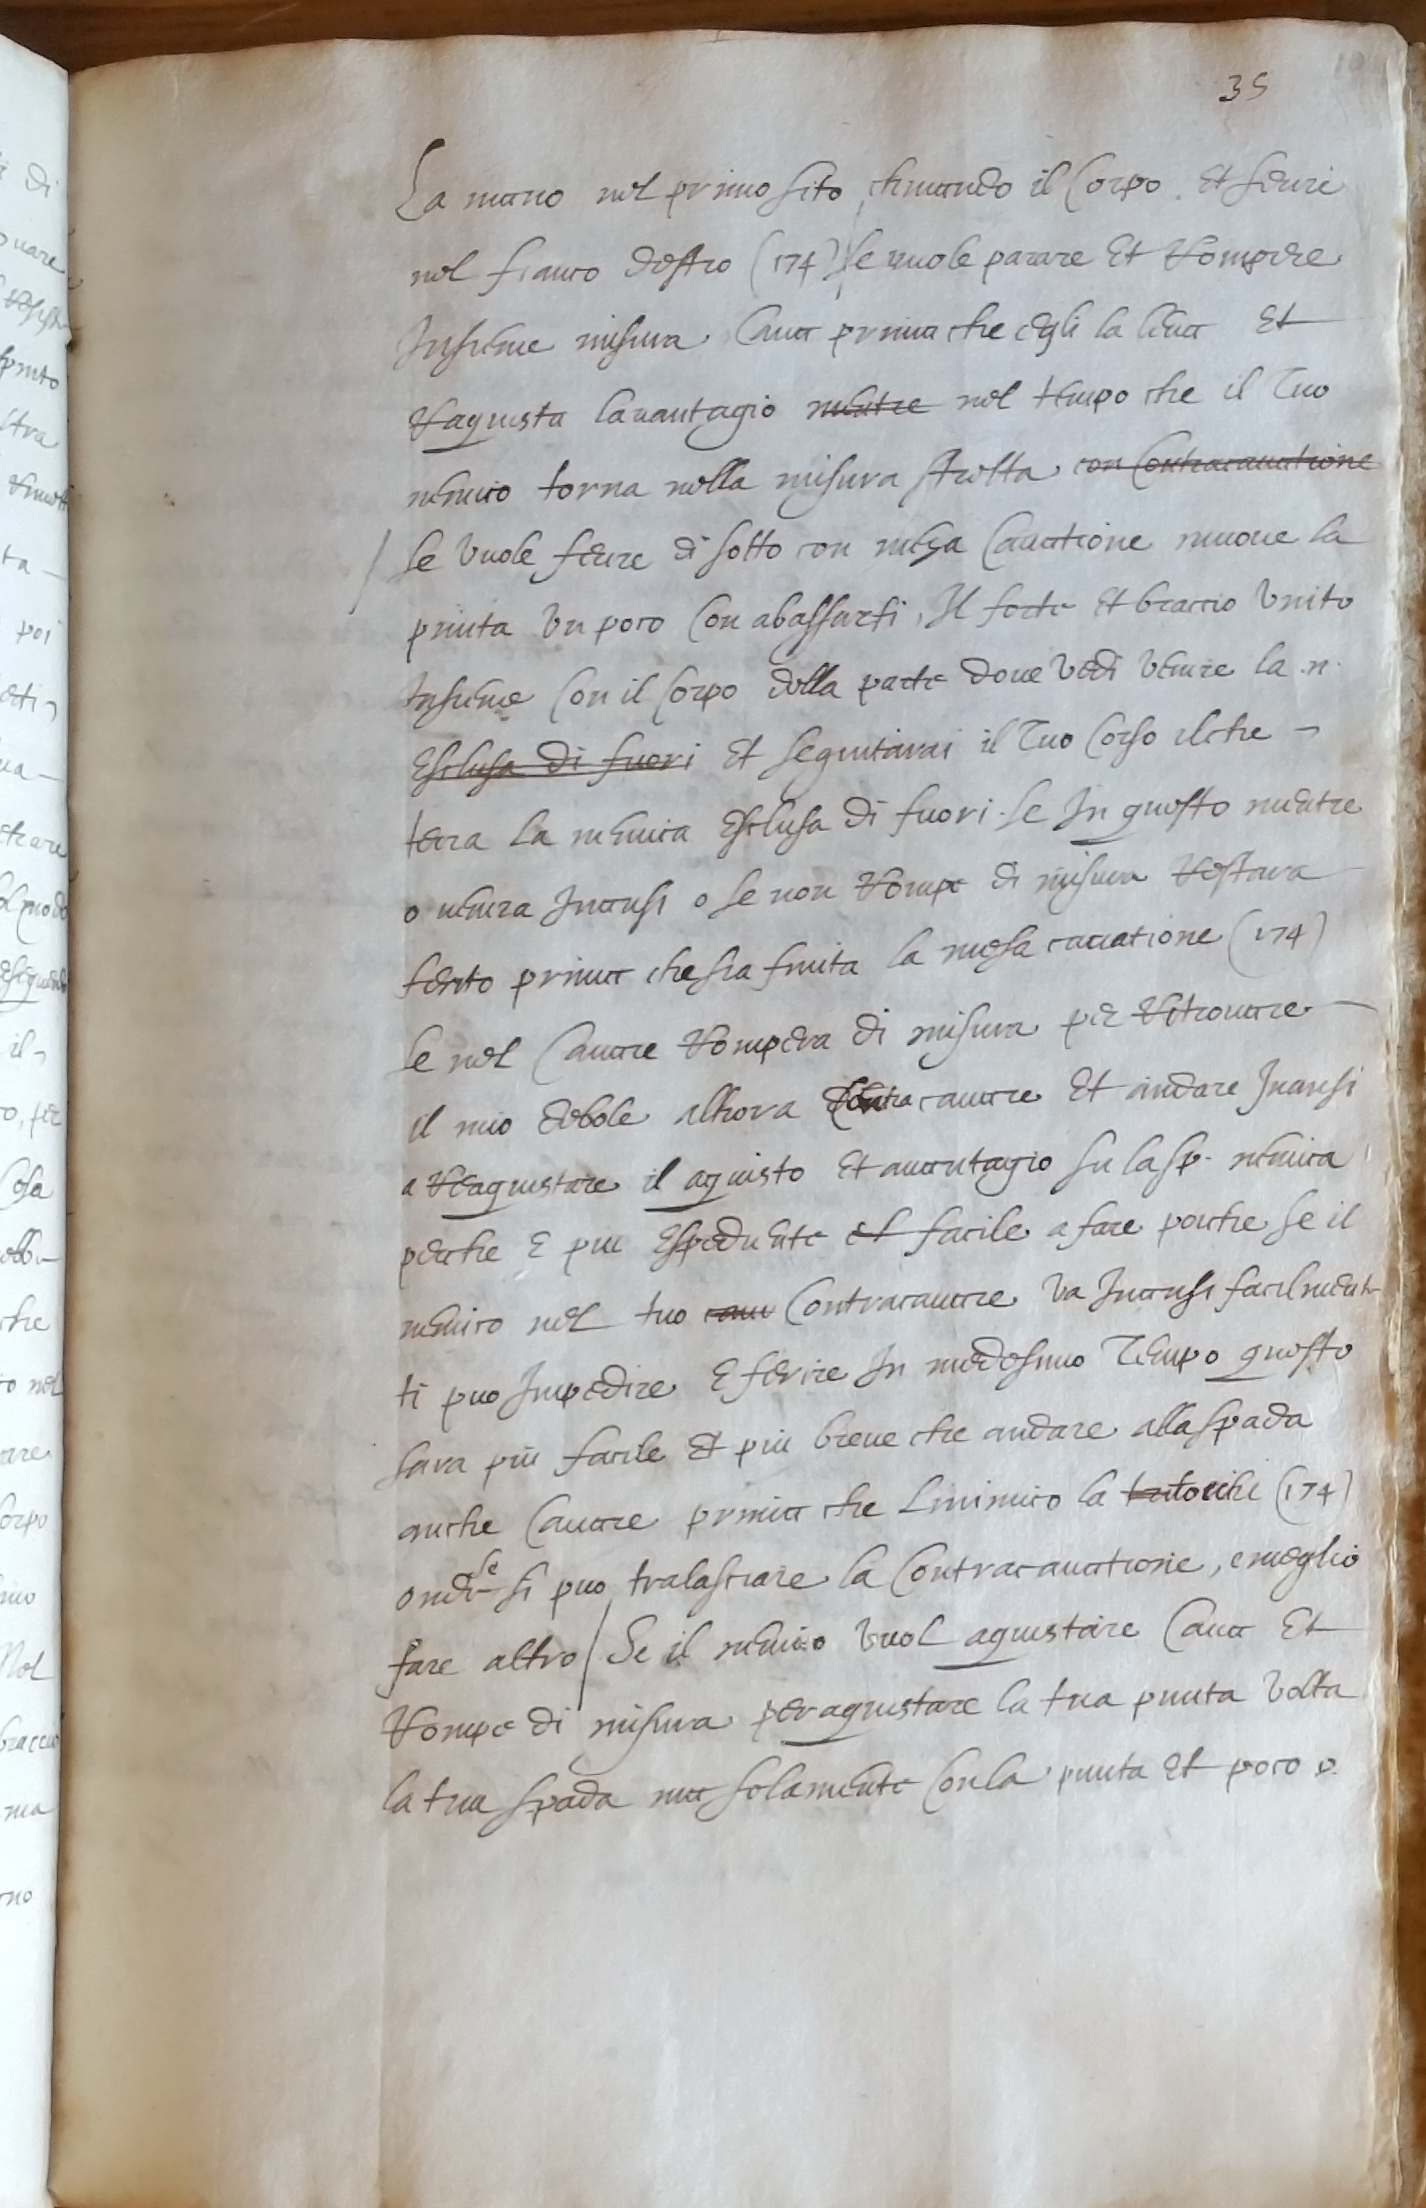 35
La mano nel primo sito, chinando il Corpo. Et ferire
nel fianco destro (174) se vuole parare Et Rompere
Insieme misura Caua prima che egli la liua Et
Raquista lauantagio mentre nel tempo che il Tuo
nemico torna nella misura stretta con Contracauatione
se Vuole ferire di sotto con meza Cauatione muoue la
punta Un poco Con abassarti, Il forte Et braccio Unito
Insieme Con il Corpo della parte doue Vedi Venire la .n.
Esclusa di fuori Et seguitarai il Tuo Corso ilche
terra La nemica Esclusa di fuori. Se In questo mentre
o uenira Inansi o se non Rompe di misura Restara
ferito prima che sia finita la mesa cauatione (174)
se nel Cauare Rompera di misura per Ritrouare
il mio debole alhora Contra cauare Et andare Inansi
a Reaquistare il aquisto Et auantagio su la sp. nemica
perche E piu Espediente et facile a fare poiche se il
nemico nel tuo cau Contracauare Va Inansi facilmente
ti puo Impedire E ferire In medesimo Tempo questo
sara piu facile Et piu breue che andare alla spada
anche Cauare prima che Linimico la (174)
onde se si puo tralasciare la Contracauatione, e meglio
fare altro / Se il nemico Vuol aquistare Caua Et
Rompe di misura per aquistare la tua punta Volta
la tua spada ma solamente Con la punta Et poco p.